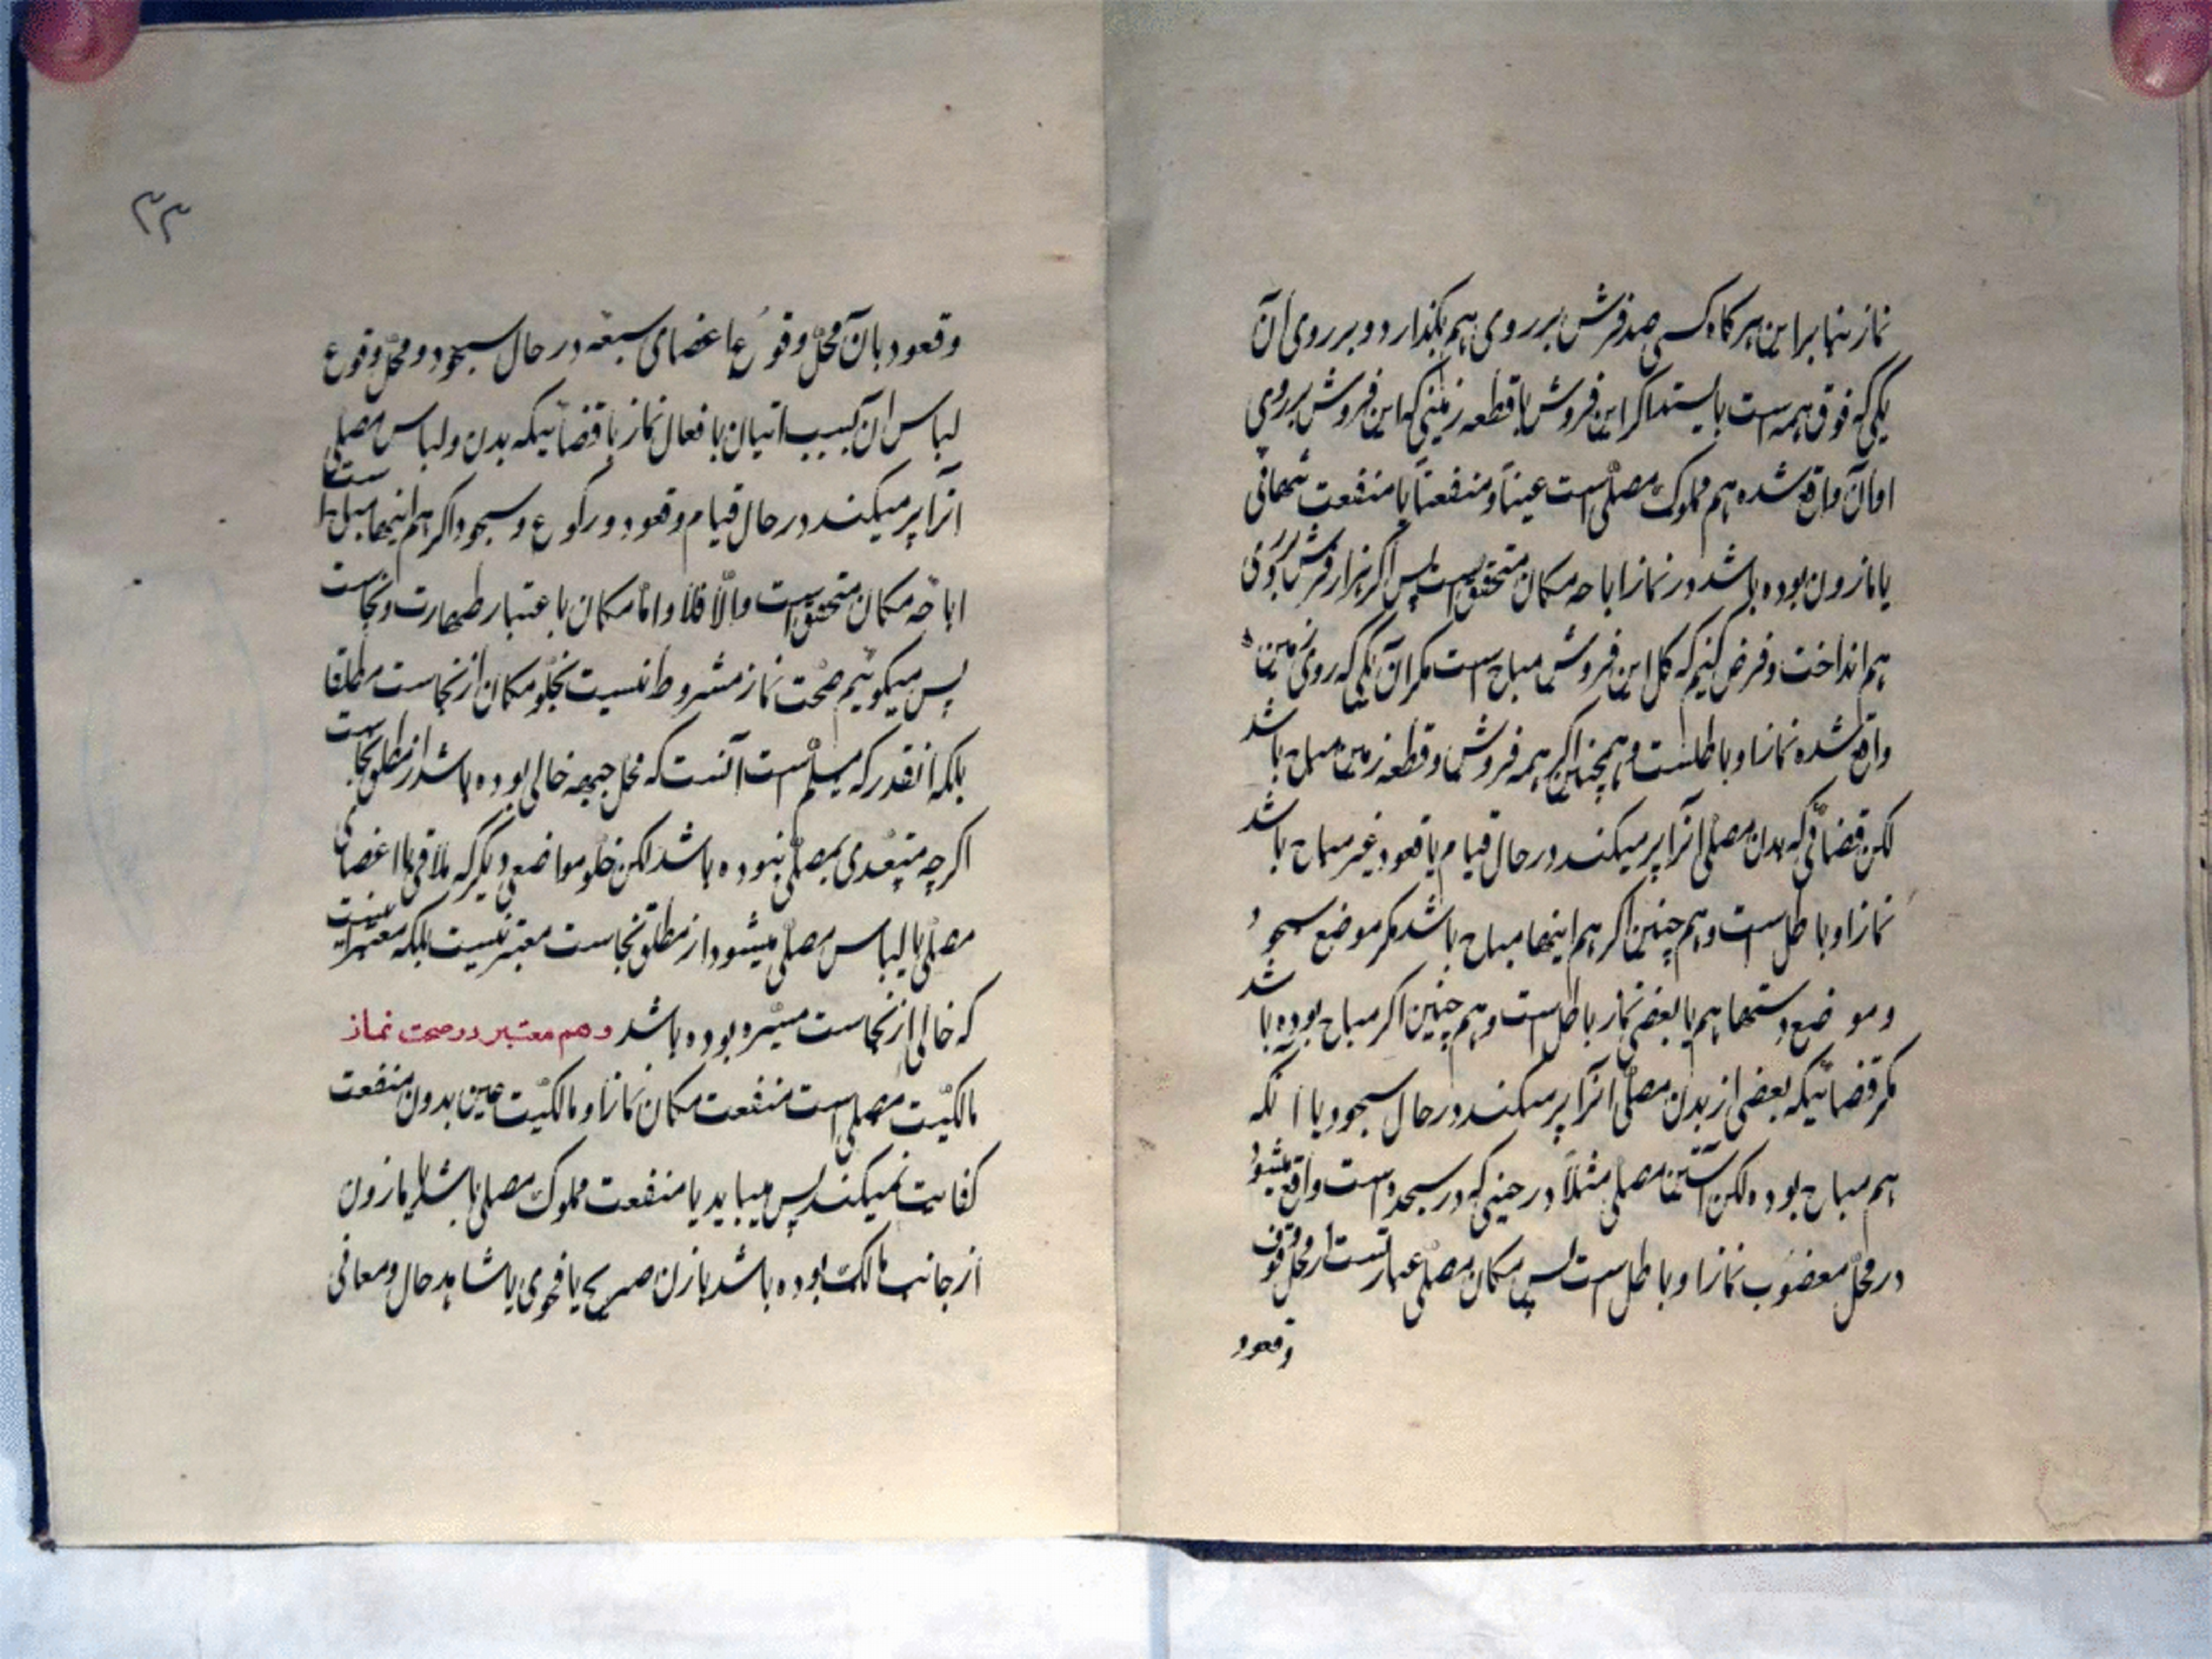 نماز بنا براین هر کاه کسی صد فرش بر روی هم بکذارد و بر روی آن
یکی که فوق همه است بایستد اکر این فروش با قطعه زمینی که این فروش بر روی
او آن واقع شده هم مملوک مصلّی است عیناً و منفعتاً یا منفعت تنهائی
یا مازون بوده باشد در نماز اباحه مکان متحقق است پس اکر هزار فرش بر روی
هم انداخت و فرض کنیم که کل این فروش مباح است مکر آن یکی که روی زمین
واقع شده نماز او باطلست و همچنین اکر همه فروش و قطعه زمین مباح باشد
لکن فضائی که بدن مصلّی آنرا پر میکند در حال قیام یا قعود غیر مباح باشد
نماز او باطل است و هم چنین اکر هم اینها مباح باشد مکر موضع سجود
و موضع دستها هم یا بعضی نماز باطل است و هم چنین اکر مباح بوده باشد
مکر فضائیکه بعضی از بدن مصلّی آنرا پر میکند در حال سجود یا آنکه
هم مباح بوده لکن آستین مصلّی مثلاً در حینی که در سجده است واقع میشود
در محلّ مغضوب نماز او باطل است پس مکان مصلّی عبارتست از محلّ وقوف
و قعود
۳۳
و قعود بآن محلّ وقوع اعضای سبعه در حال سجود و محلّ وقوع
لباس آن بسبب اتیان بافعال نماز با فضائیکه بدن و لباس مصلی
آنرا پر میکند در حال قیام و قعود و رکوع و سجود اکر هم اینها مباح است
اباحه مکان متحقق است والّا فلا و امّا مکان باعتبار طهارت و نجاست
پس میکوئیم صحّت نماز مشروط نیست بخلو مکان از نجاست مطلقا
بلکه آنقدر که مسلم است آنست که محل جبهه خالی بوده باشد از مطلق نجاست
اکر چه متعدی بمصلّی نبوده باشد لکن خلو مواضعی دیکر که ملاقی با اعضای
مصلّی یا لباس مصلّی میشود از مطلق نجاست معتبر نیست بلکه معتبر اینست
که خالی از نجاست مسریه بوده باشد و هم معتبر در صحت نماز
مالکیّت مصلی است منفعت مکان نماز را و مالکیّت عین بدون منفعت
کفایت نمیکند پس میباید یا منفعت مملوک مصلی باشد یا مازون
از جانب مالک بوده باشد بازن صریح یا فحوی یا شاهد حال و معانی